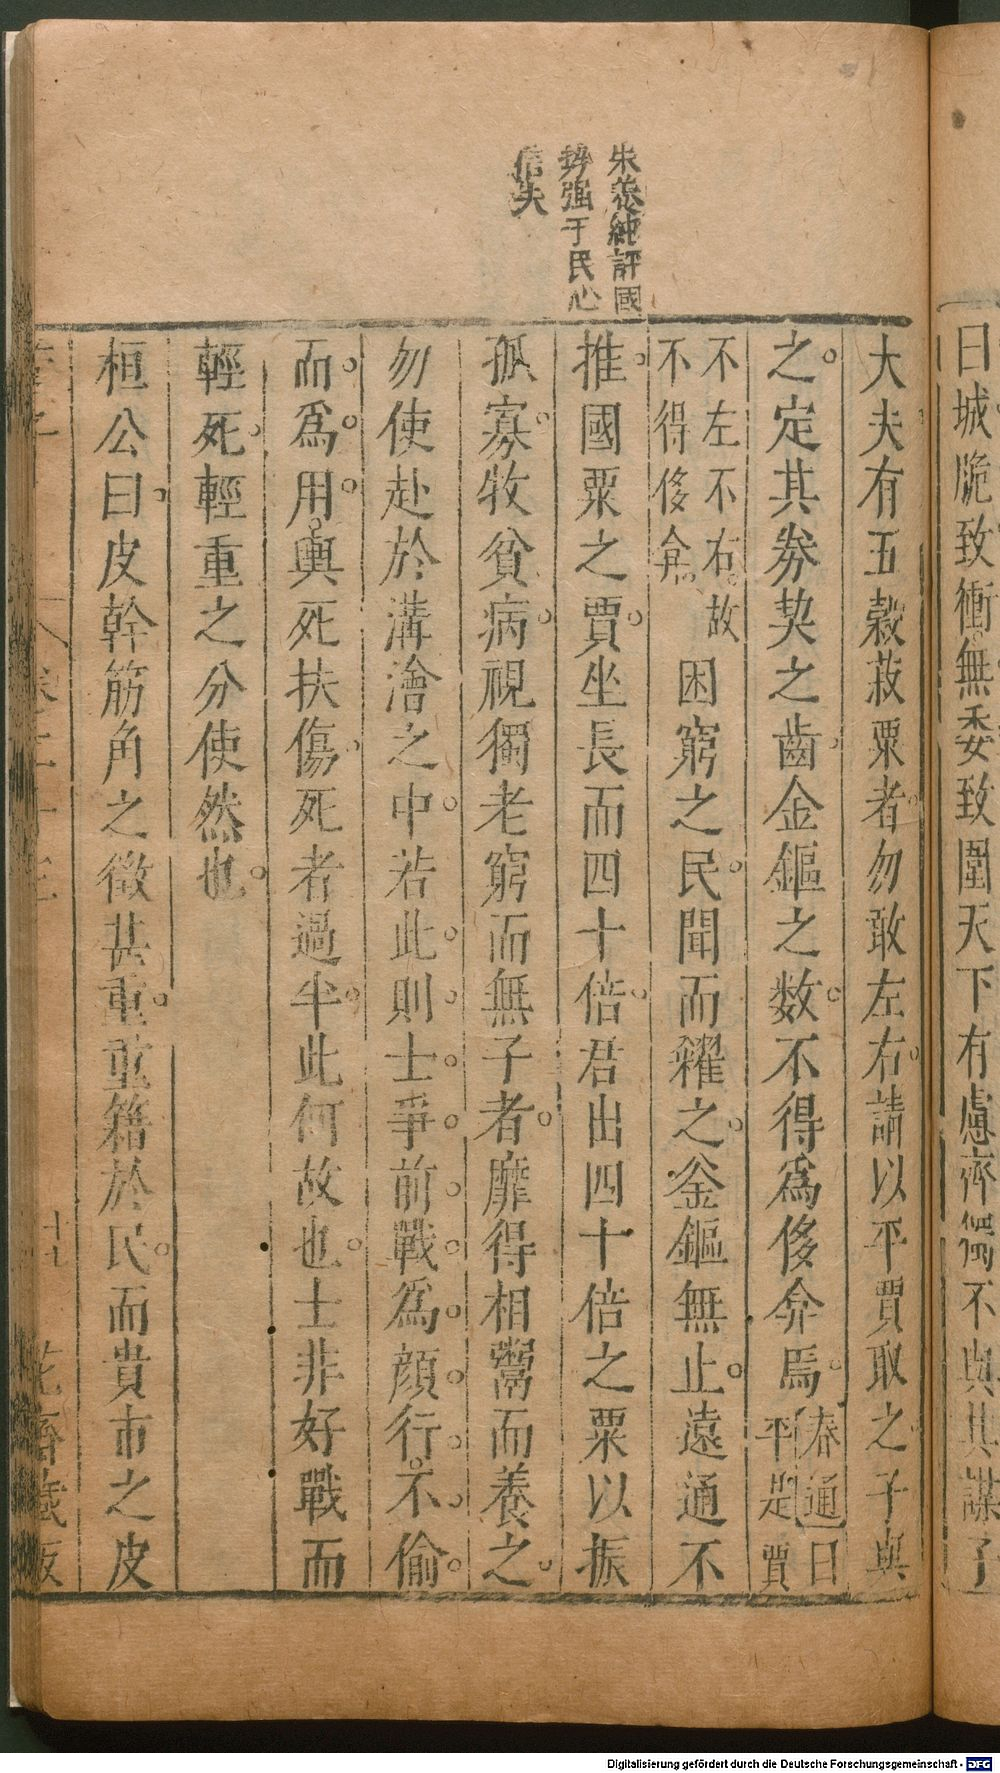 曰城脆致衝無委致圍天下有慮齊獨不與其謀子
朱養純評國
勢强于民心
信矣
大夫有五穀菽粟者勿敢左右請以平賈取之子與
之定其劵契之齒金鏂之数不得爲侈弇焉春通曰平是賈
不左不右故不得侈弇困窮之民聞而糴之釜鏂無止遠通不
推國粟之賈坐長而四十倍君出四十倍之粟以振
孤寡牧貧病視獨老窮而無子者靡得相鬻而養之
勿使赴於溝澮之中若此則士爭前戰爲顔行不偷
而爲用輿死扶傷死者過半此何故也士非好戰而
輕死輕重之分使然也
桓公曰皮幹筋角之徵甚重重籍於民而貴市之皮
卷二十三
十七
花齋藏板
Digitalisierung gefördert durch die Deutsche Forschungsgemeinschaft - DFG